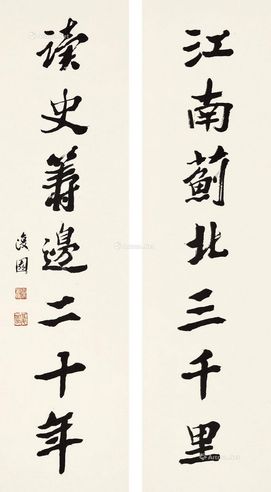 江南蓟北三千里
读史筹边二十年
復園